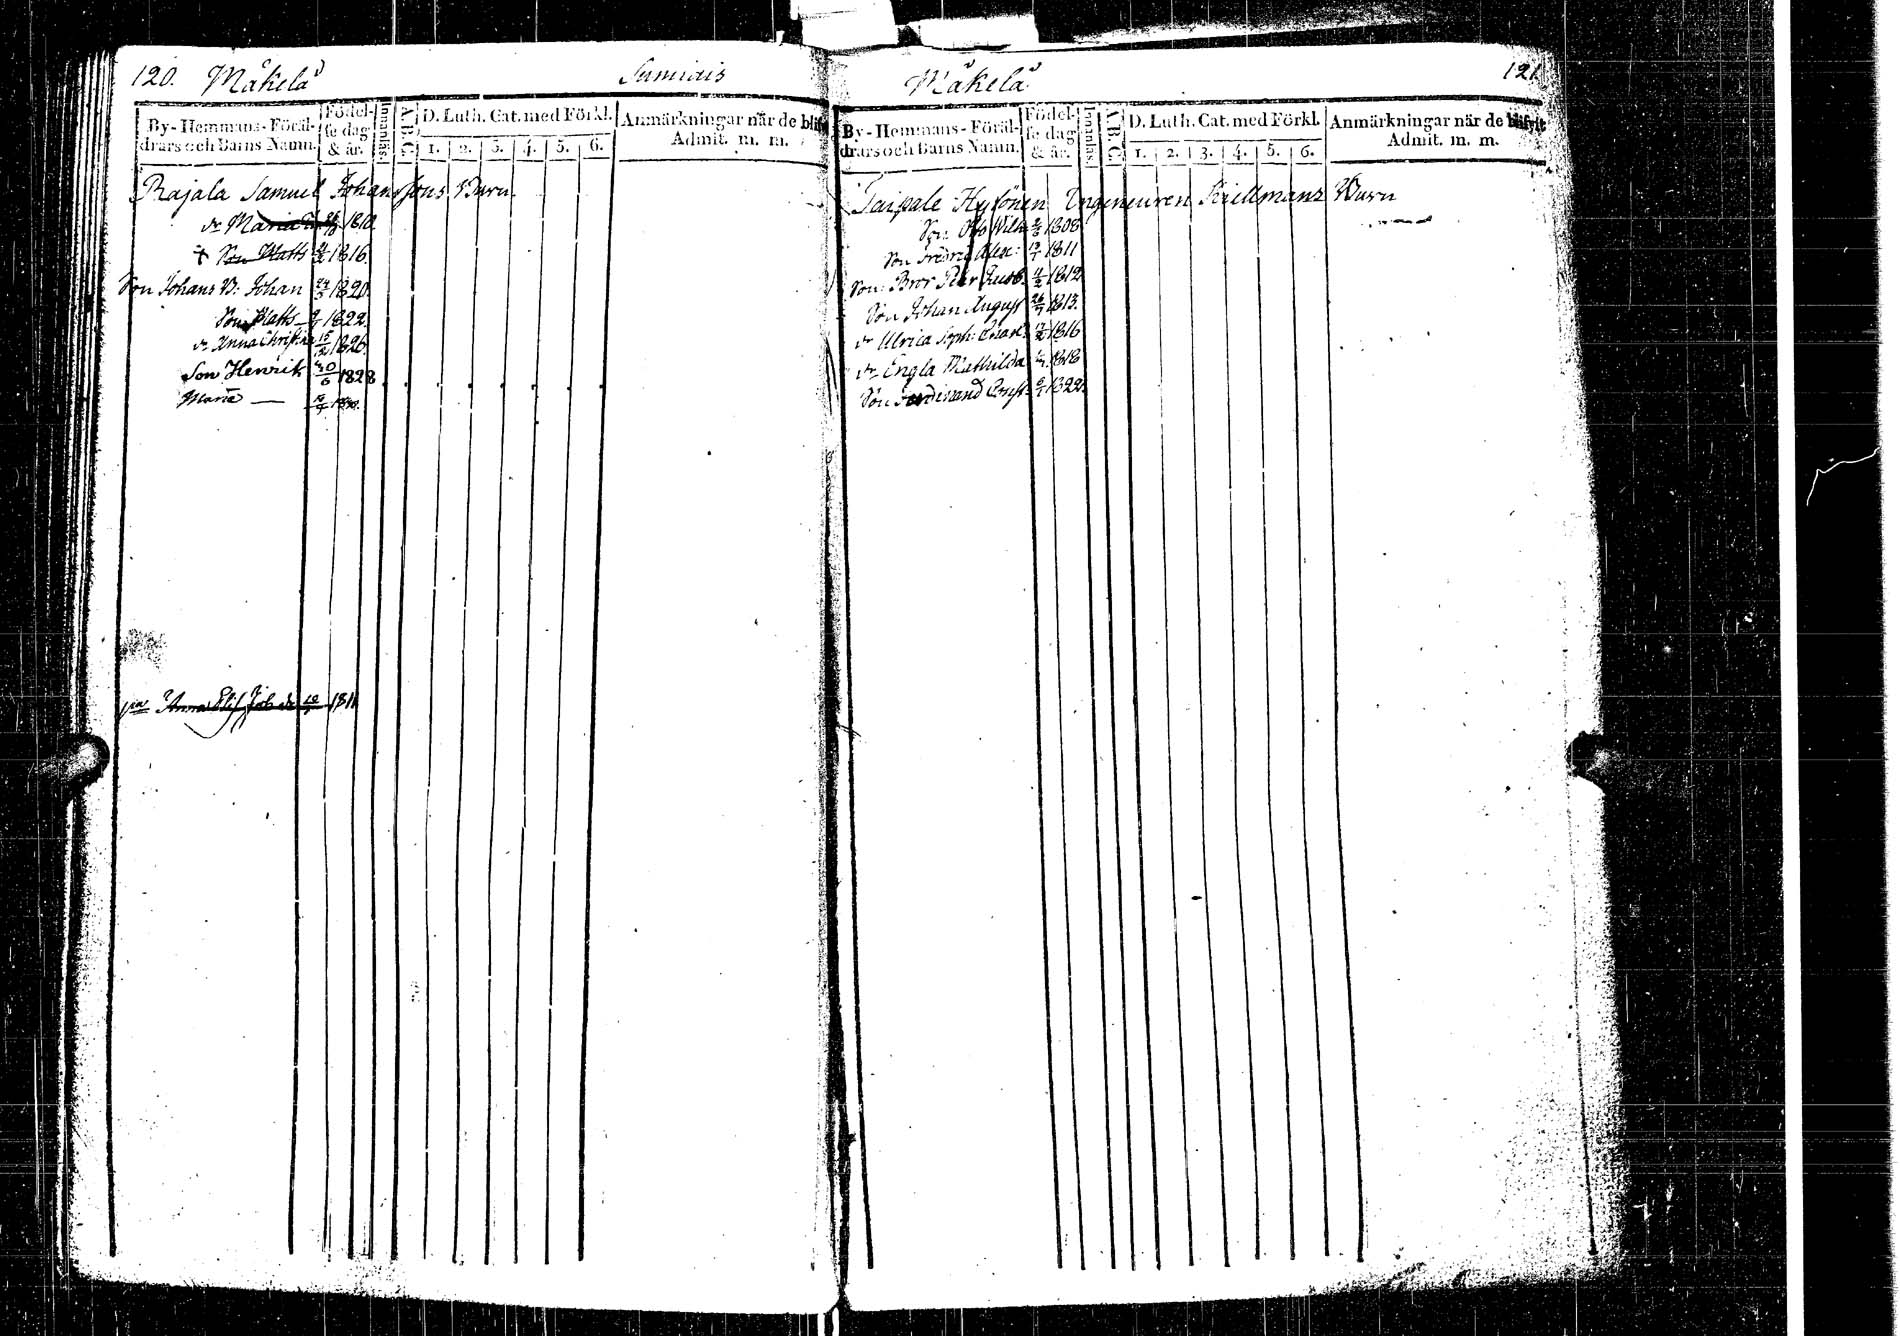 120. Mäkelä Sumiais
By-Hemmans-Föräl-
drars och Barns Namn.
Födel-
se dag
& år.
Innanläs.
A.B.C.
D. Luth. Cat. med Förkl.
1. 2. 3. 4. 5. 6.
Anmärkningar när de blifvit
Admit. m. m.
Rajala Samuel Johanssons Barn
dr Maria 1810
† Son Matts 1816.
Son Johans B: Johan 1820.
Son Matts 1822.
dr Anna Christina 15/12 1826.
Son Henrik 30/6 1828
Maria —
Anna Elis 1811
Mäkelä 121
By-Hemmans-Föräl-
drars och Barns Namn.
Födel-
se dag
& år.
Innanläs.
A.B.C.
D. Luth. Cat. med Förkl.
1. 2. 3. 4. 5. 6.
Anmärkningar när de blifvit
Admit. m. m.
Taipale Hytönen Ingenieuren Kiellmans Barn
Son Otto Wilh: 1808
Son Fredric Alex: 1811
Son: Bror Pehr Gust: 1812
Son Johan August 26/7 1813.
dr Ulrica Soph: Charl: 1816
dr Engla Mathilda 1818
Son Ferdinand Ernst 1822.